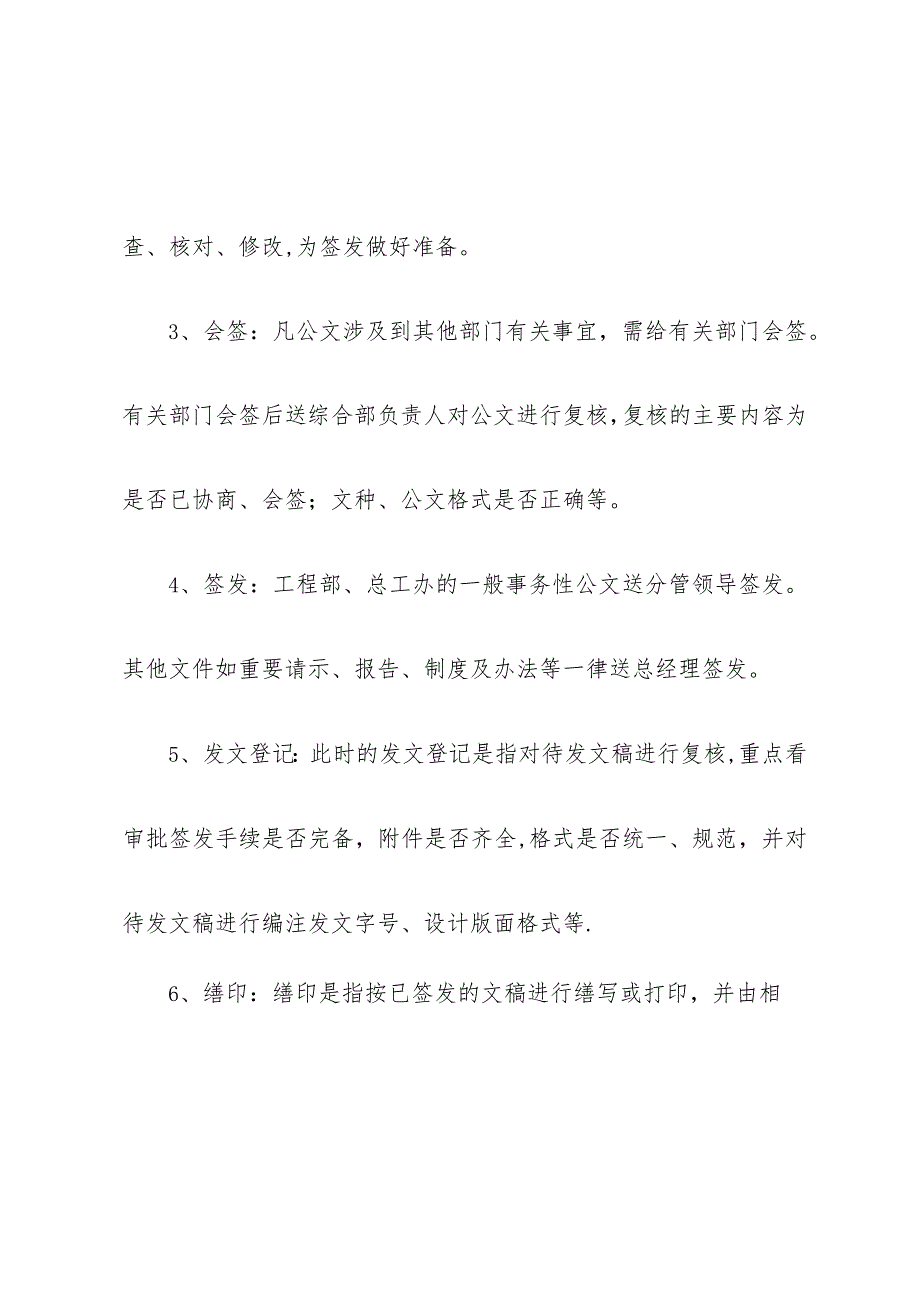 查、核对、修改,为签发做好准备。
3、会签：凡公文涉及到其他部门有关事宜，需给有关部门会签。
有关部门会签后送综合部负责人对公文进行复核,复核的主要内容为
是否已协商、会签；文种、公文格式是否正确等。
4、签发：工程部、总工办的一般事务性公文送分管领导签发。
其他文件如重要请示、报告、制度及办法等一律送总经理签发。
5、发文登记：此时的发文登记是指对待发文稿进行复核,重点看
审批签发手续是否完备，附件是否齐全,格式是否统一、规范，并对
待发文稿进行编注发文字号、设计版面格式等.
6、缮印：缮印是指按已签发的文稿进行缮写或打印，并由相